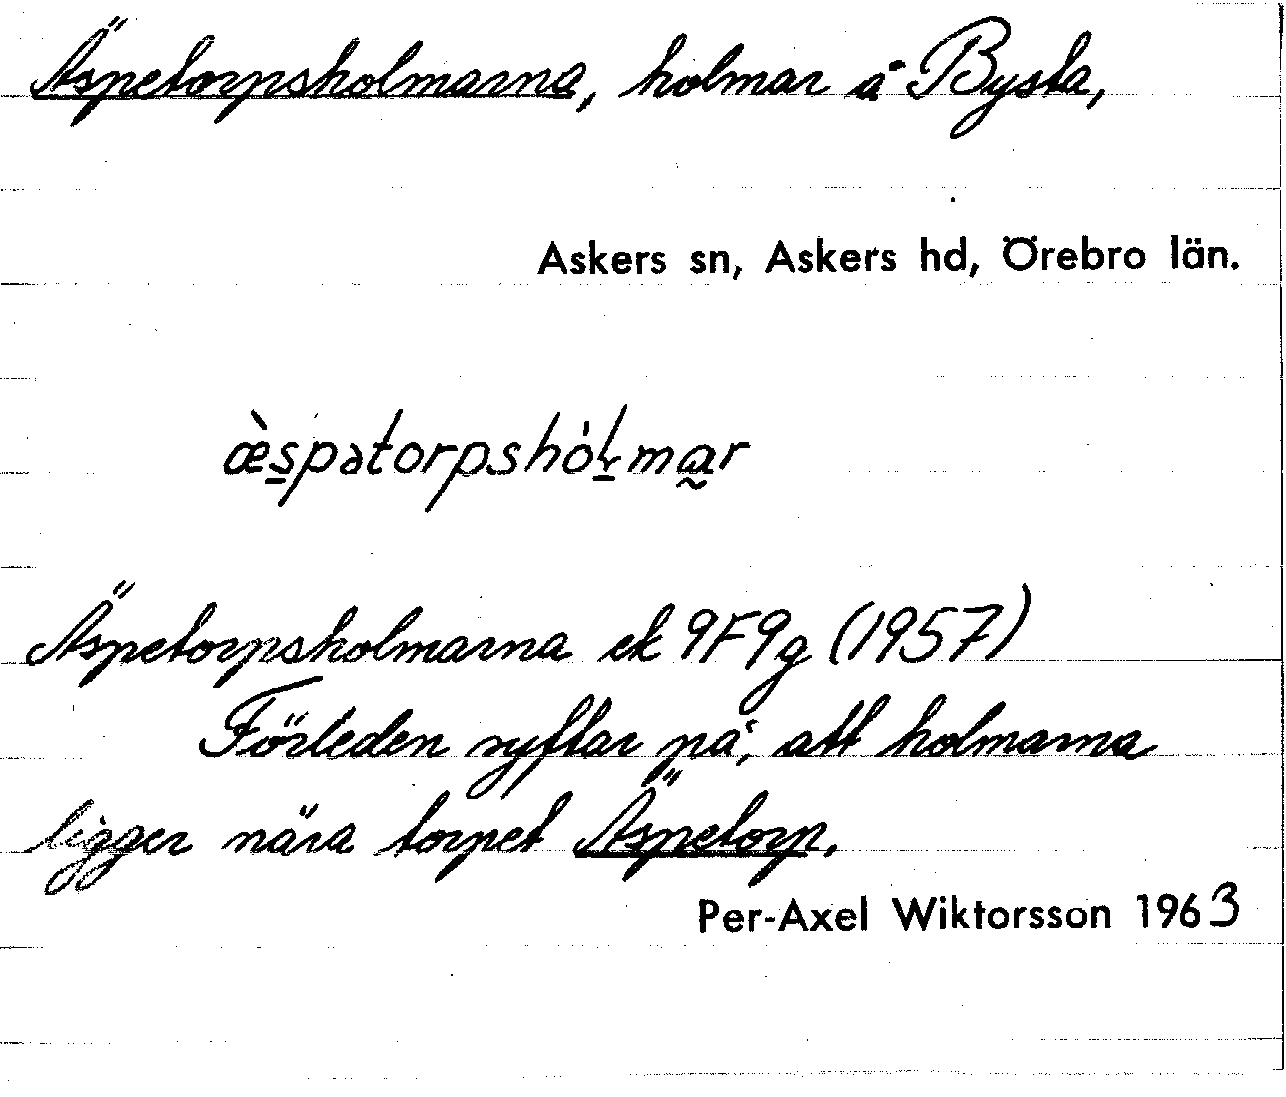 Äspetorpsholmarna, holmar å Bysta,
Askers sn, Askers hd, Örebro län.
æ̀s̠pətorpshò̍ɫ̠ma̰r
Äspetorpsholmarna ek 9F9g (1957)
Förleden syftar på, att holmarna
ligger nära torpet Äspetorp.
Per-Axel Wiktorsson 1963